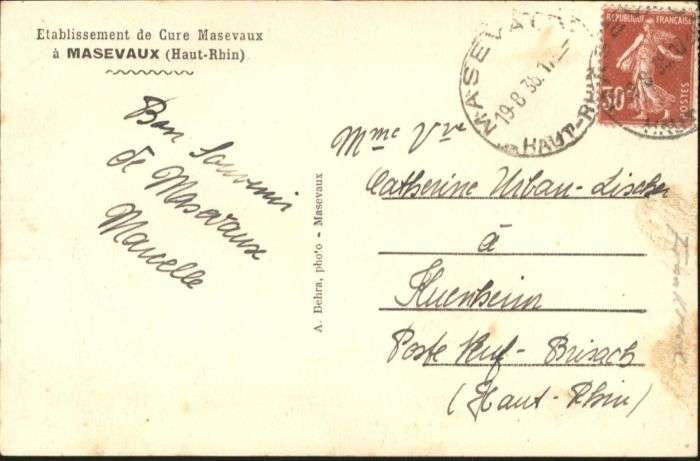 Etablissement de Cure Masevaux
à MASEVAUX (Haut-Rhin)
Bon Souvenir
de Masevaux
Marcelle
A. Behra, photo - Masevaux
MASEVAUX
19-8 36
HAUT-RHIN
REPUBLIQUE FRANÇAISE
30
POSTES
Mme Vve
Catherine Urban-Lischer
à
Kuenheim
Poste Neuf-Brisach
(Haut-Rhin)